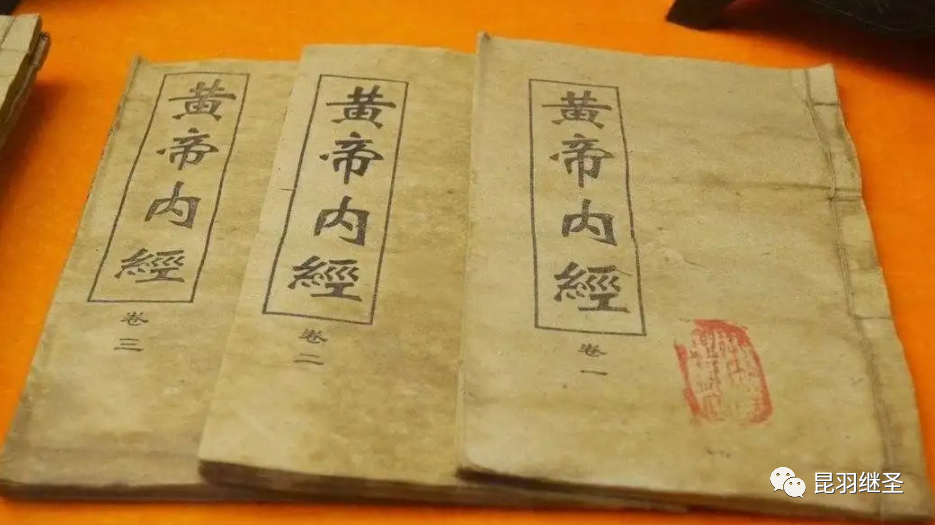 黄帝内經
卷三
黄帝内經
卷二
黄帝内經
卷一
昆羽继圣